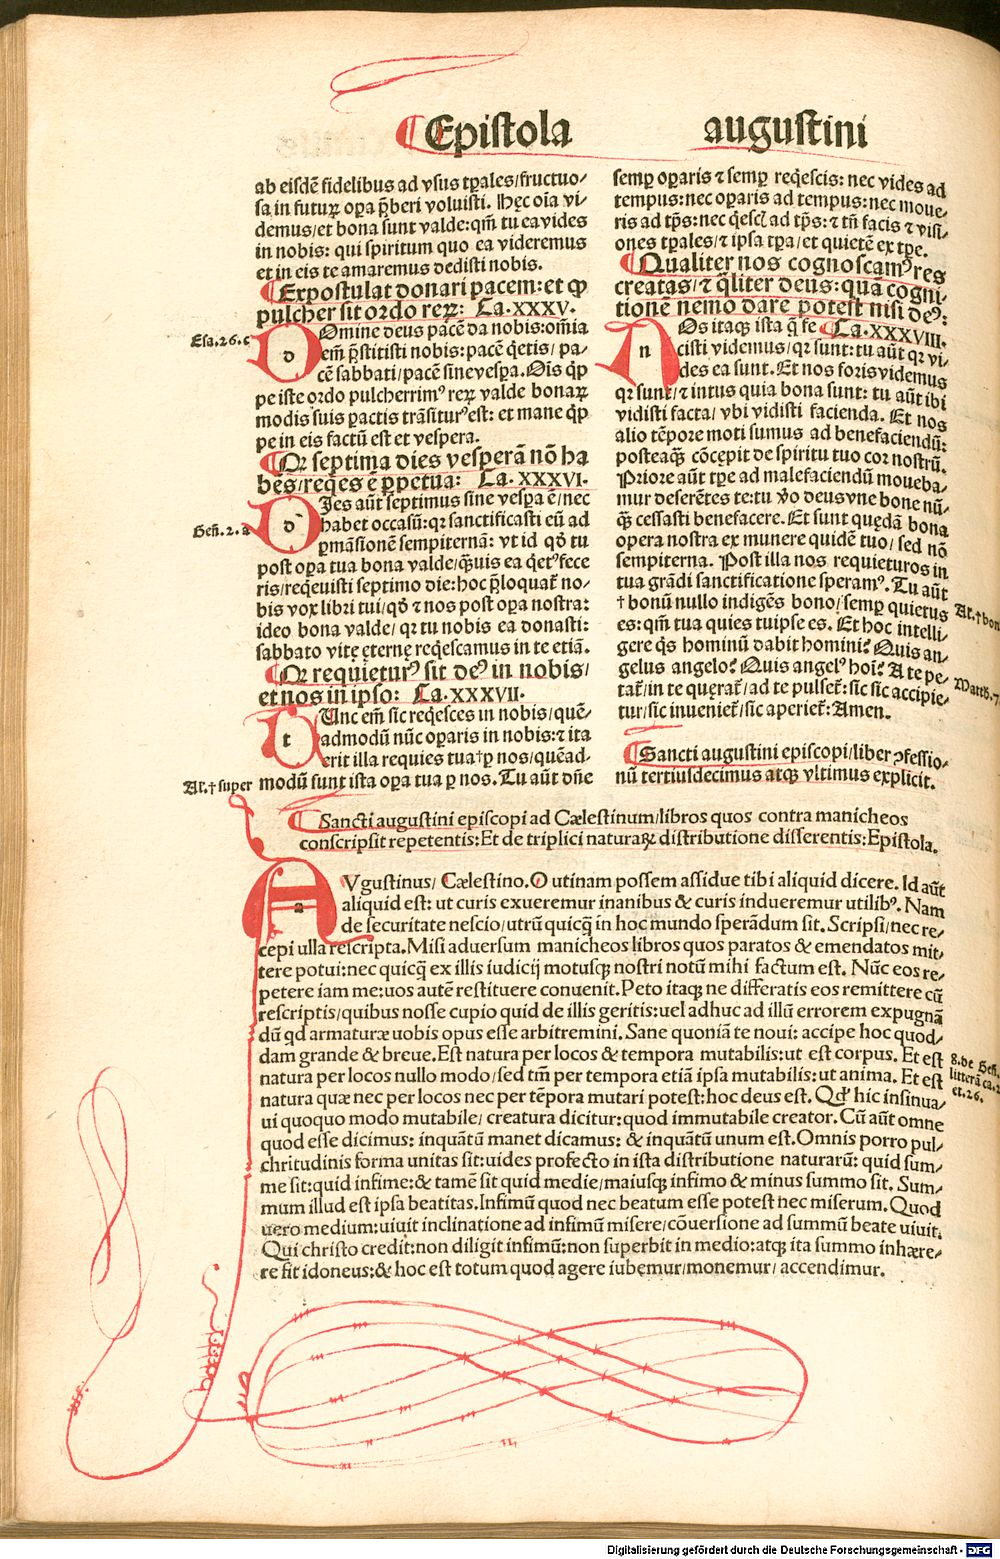 ¶Epistola augustini
ab eisdē fidelibus ad vsus tꝑales/fructuo-
sa in futurꝝ oꝑa p̄beri voluisti. Hęc oīa vi-
demus/et bona sunt valde:qm̄ tu ea vides
in nobis: qui spiritum quo ea videremus
et in eis te amaremus dedisti nobis.
¶Expostulat donari pacem:et ꝙ
pulcher sit ordo reꝝ: Ca.XXXV.
Esa.26.c
dOmine deus pacē da nobis:om̄ia
em̄ p̄stitisti nobis:pacē q̄etis/pa-
cē sabbati/pacē sine vesꝑa. Oīs q̄ꝑ
pe iste ordo pulcherrimꝰ reꝝ valde bonaꝝ
modis suis ꝑactis trāsiturꝰ est: et mane q̄ꝑ
pe in eis factū est et vespera.
¶Qꝛ septima dies vesperā nō ha
bēs/reqes ē ꝑpetua: Ca.XXXVI.
Geñ.2.a
dIes aūt septimus sine vesꝑa ē/nec
habet occasū:qꝛ sanctificasti eū ad
ꝑmāsionē sempiternā: vt id qđ tu
post oꝑa tua bona valde/q̄uis ea q̄etꝰ fece
ris/reqeuisti septimo die:hoc p̄loquat̄ no-
bis vox libri tui/qđ ⁊ nos post oꝑa nostra:
ideo bona valde/ qꝛ tu nobis ea donasti:
sabbato vitę eternę reqescamus in te etiā.
¶Qꝛ requieturꝰ sit deꝰ in nobis/
et nos in ipso: Ca.XXXVII.
tUnc em̄ sic reqesces in nobis/quē-
admodū nūc oꝑaris in nobis:⁊ ita
erit illa requies tua†ꝑ nos/quēad-
Al.†super
modū sunt ista oꝑa tua ꝑ nos. Tu aūt dn̄e
semꝑ oꝑaris ⁊ semꝑ reqescis: nec vides ad
tempus:nec oꝑaris ad tempus:nec moue-
ris ad tp̄s:nec q̄escꝭ ad tp̄s:⁊ tn̄ facis ⁊ visi-
ones tꝑales/⁊ ipsa tꝑa/et quietē ex tꝑe.
¶Qualiter nos cognoscamꝰ res
creatas/⁊ q̄liter deus:quā cogni-
tionē nemo dare potest nisi deꝰ:
¶Ca.XXXVIII.
nOs itaqꝫ ista q̄ fe
cisti videmus/qꝛ sunt:tu aūt qꝛ vi-
des ea sunt. Et nos foris videmus
qꝛ sunt/⁊ intus quia bona sunt: tu aūt ibi
vidisti facta/ vbi vidisti facienda. Et nos
alio tēpore moti sumus ad benefaciendū:
posteaqꝫ cōcepit de spiritu tuo cor nostrū.
Priore aūt tꝑe ad malefaciendū moueba-
mur deserētes te:tu ꝟo deus vne bone nū-
qꝫ cessasti benefacere. Et sunt quędā bona
opera nostra ex munere quidē tuo/ sed nō
sempiterna. Post illa nos requieturos in
tua grādi sanctificatione speramꝰ. Tu aūt
†bonū nullo indigēs bono/semꝑ quietus
Al.†bon
es: qm̄ tua quies tuipse es. Et hoc intelli-
gere q̄s hominū dabit homini? Quis an-
gelus angelo? Quis angelꝰ hoī? A te pe-
Matth.7.
tat̄/in te quęrat̄/ad te pulset̄: sic sic accipie-
tur/sic inueniet̄/sic aperiet̄: Amen.
¶Sancti augustini episcopi/liber ꝯfessio-
nū tertiusdecimus atqꝫ vltimus explicit.
¶Sancti augustini episcopi ad Cælestinum/libros quos contra manicheos
conscripsit repetentis:Et de triplici naturaꝝ distributione disserentis:Epistola.
aAVgustinus/ Cælestino.O utinam possem assidue tibi aliquid dicere. Id aūt
aliquid est: ut curis exueremur inanibus & curis indueremur utilibꝰ. Nam
de securitate nescio/utrū quicq̄ in hoc mundo sperādum sit.Scripsi/nec re-
cepi ulla rescripta.Misi aduersum manicheos libros quos paratos & emendatos mit-
tere potui:nec quicq̄ ex illis iudicij motusqꝫ nostri notū mihi factum est. Nūc eos re-
petere iam me:uos autē restituere conuenit.Peto itaqꝫ ne differatis eos remittere cū
rescriptis/quibus nosse cupio quid de illis geritis:uel adhuc ad illū errorem expugnā
dū qd armaturæ uobis opus esse arbitremini. Sane quoniā te noui: accipe hoc quod-
dam grande & breue.Est natura per locos & tempora mutabilis:ut est corpus. Et est
8.de Geñ.
natura per locos nullo modo/sed tm̄ per tempora etiā ipsa mutabilis: ut anima. Et est
litterā ca.2
natura quæ nec per locos nec per tēpora mutari potest:hoc deus est. Qđ hic insinua-
et.26.
ui quoquo modo mutabile/ creatura dicitur:quod immutabile creator. Cū aūt omne
quod esse dicimus: inquātū manet dicamus: & inquātū unum est.Omnis porro pul-
chritudinis forma unitas sit:uides profecto in ista distributione naturarū: quid sum-
me sit:quid infime:& tamē sit quid medie/maiusqꝫ infimo & minus summo sit. Sum-
mum illud est ipsa beatitas.Infimū quod nec beatum esse potest nec miserum.Quod
uero medium:uiuit inclinatione ad infimū misere/cōuersione ad summū beate uiuit.
Qui christo credit:non diligit infimū:non superbit in medio:atqꝫ ita summo inhære-
re fit idoneus:& hoc est totum quod agere iubemur/monemur/ accendimur.
Digitalisierung gefördert durch die Deutsche Forschungsgemeinschaft - DFG